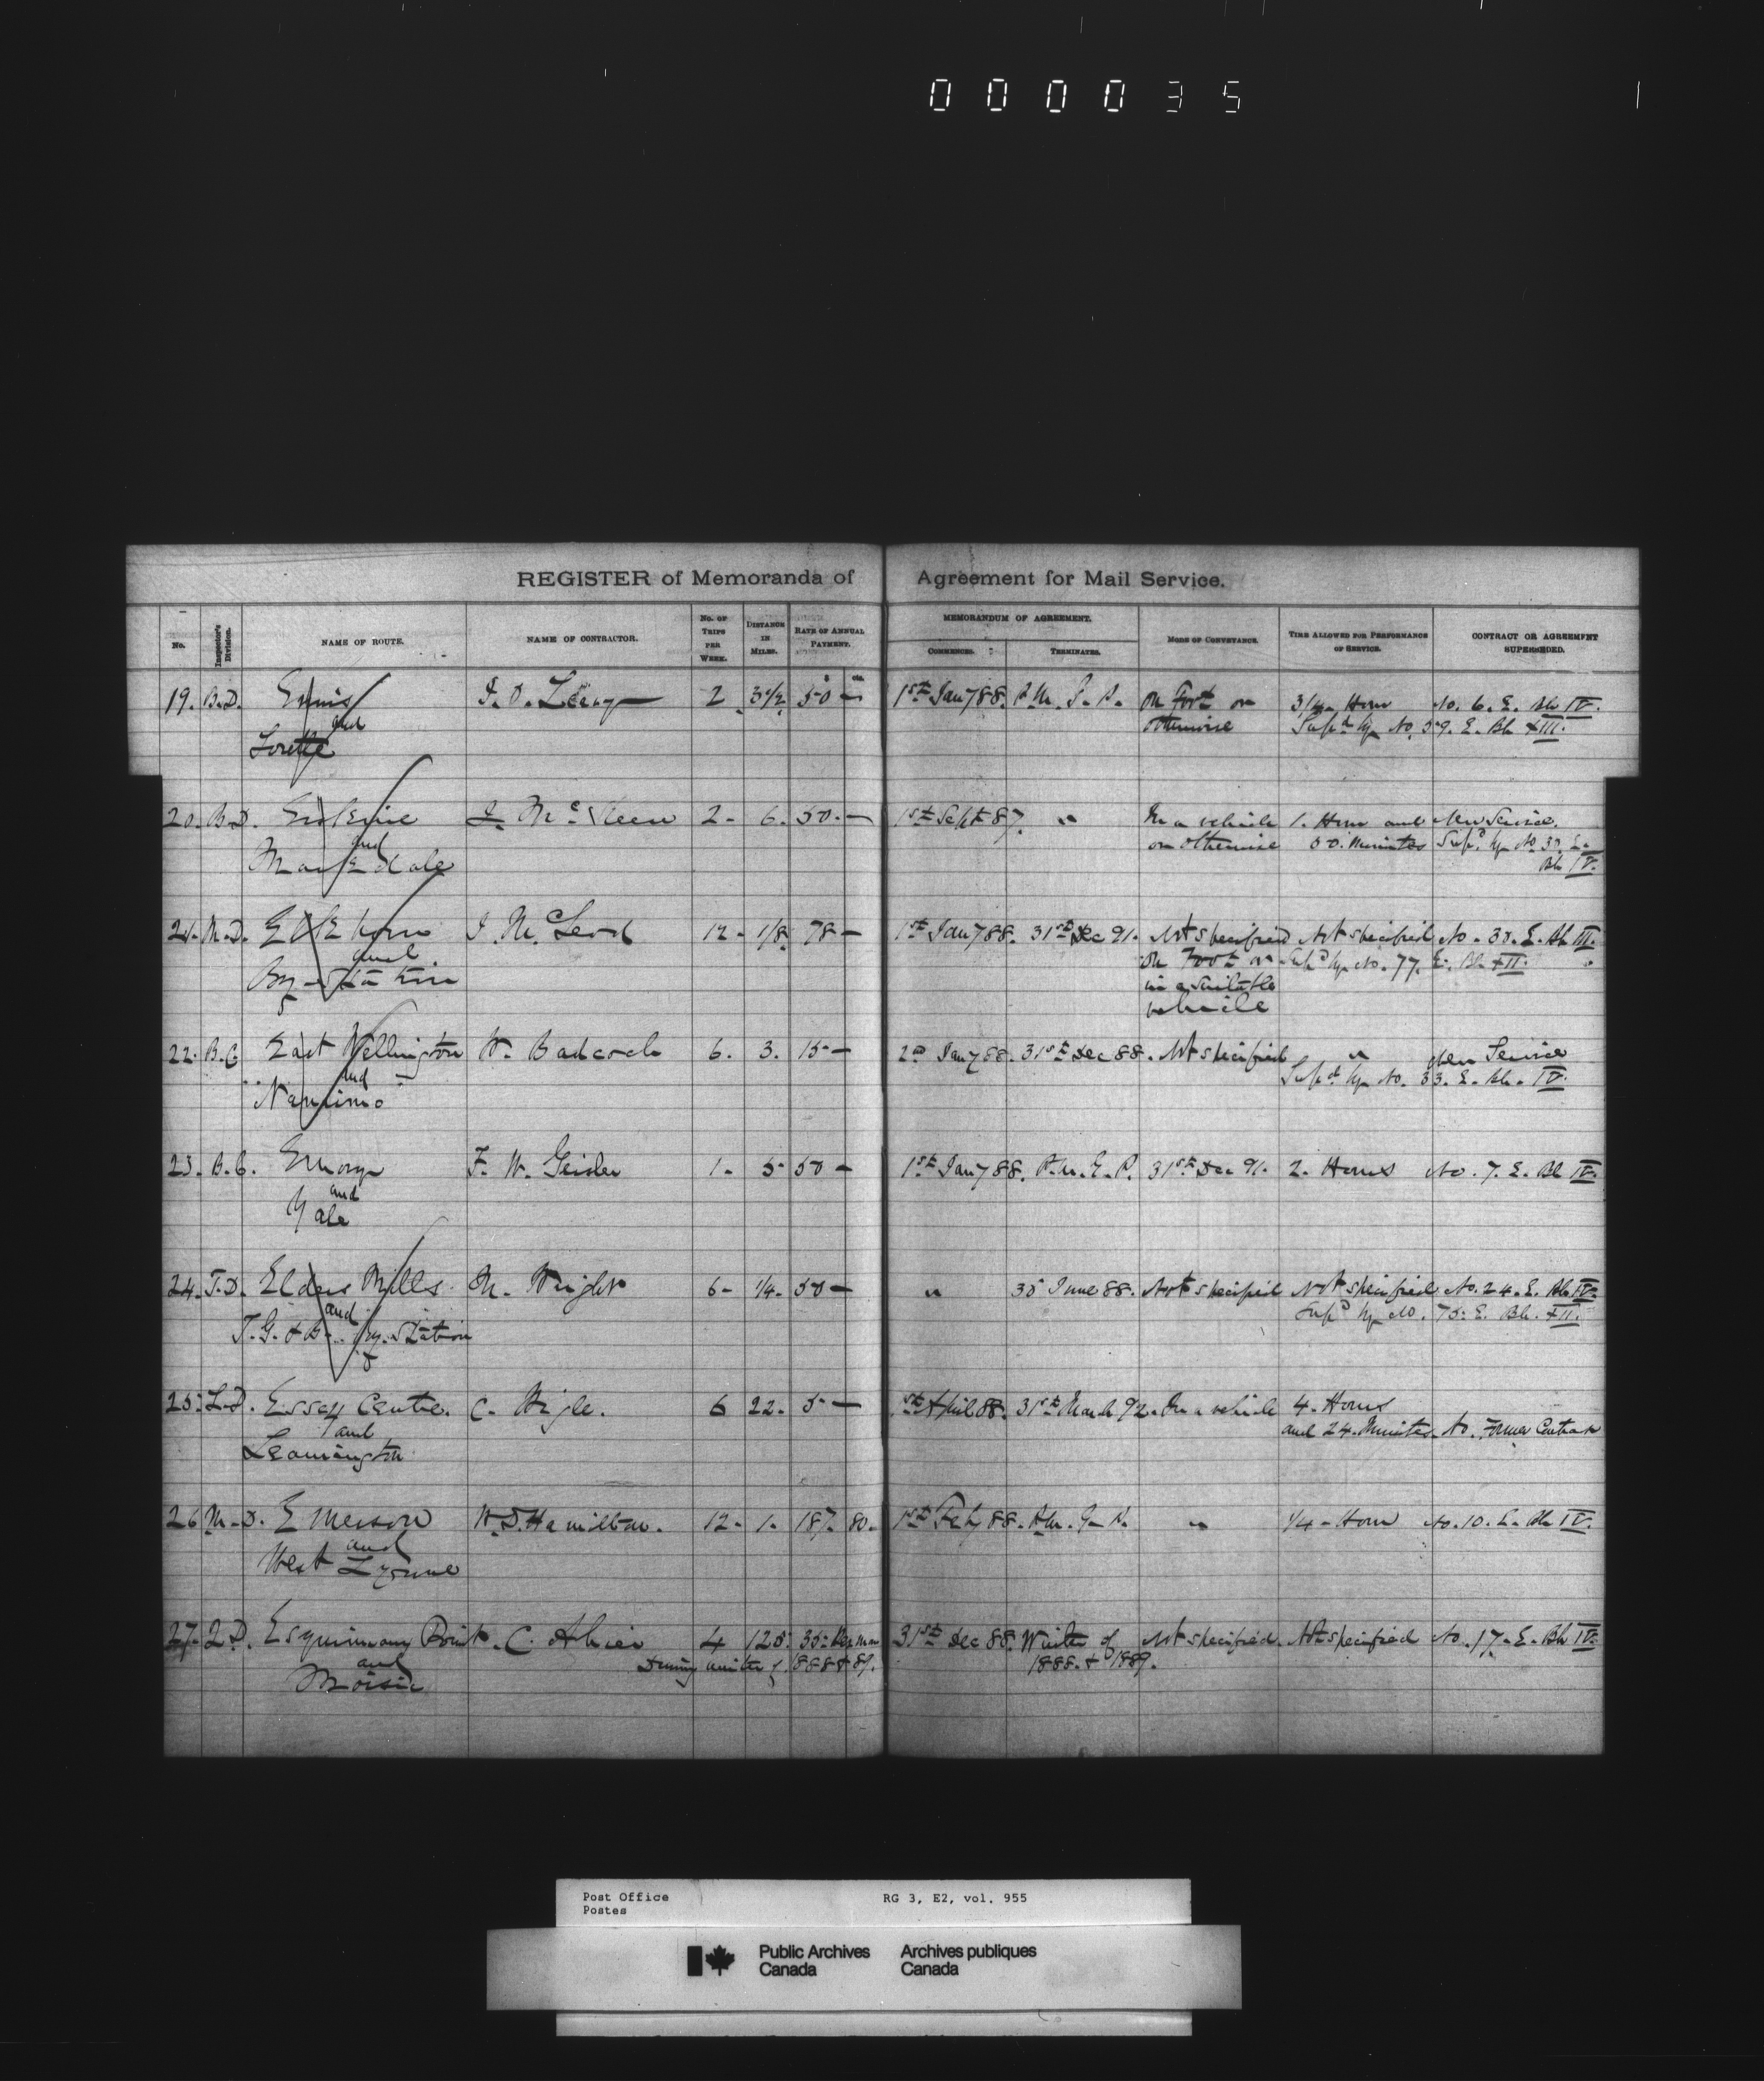 000035
REGISTER of Memoranda of Agreement for Mail Service.
No. Inspector's Division. NAME OF ROUTE. NAME OF CONTRACTOR. No. OF TRIPS PER WEEK. DISTANCE IN MILES. RATE OF ANNUAL PAYMENT. MEMORANDUM OF AGREEMENT. COMMENCES. TERMINATES. MODE OF CONVEYANCE. TIME ALLOWED FOR PERFORMANCE OF SERVICE. CONTRACT OR AGREEMENT SUPERSEDED.
19. B.D. Ennis 2 3 1/2 50 — 1st Jany 88. P.M.G.P. On foot or 3/4 Hour No. 6. E. Bk IV.
and otherwise Supd by No. 59. E. Bk XIII.
Lorette
20. B.D. Erskine 2- 6. 50. — 1st Sept 87. " In a vehicle 1. Hour and New Service.
and or otherwise 30. Minutes Supd by No 30. E.
Markdale Bk IV.
21. M.D. Elkhorn J. McLeod 12- 1/8 78 — 1st Jany 88. 31st Dec 91. Not specified Not specified No. 30. E. Bk III.
and On Foot or Supd by No. 77. E. Bk XII.
Ry Station in a suitable
vehicle
22. B.C. East Wellington W. Badcock 6. 3. 15 — 2nd Jany 88. 31st Dec 88. Not specified " New Service
and Supd by No. 33. E. Bk. IV.
Nanaimo
23. B.C. Emory F. W. Geisler 1. 5 50 — 1st Jany 88. P.M.G.P. 31st Dec 91. 2. Hours No. 7. E. Bk IV.
and
Yale
24. T.D. Elders Mills M. Wright 6- 1/4. 50 — " 30 June 88. Not specified Not specified No. 24. E. Bk IV.
and Supd by No. 75. E. Bk. XII.
T.G. & B. Ry. Station
25. L.D. Essex Centre. C. Wigle. 6 22. 5 — 1st April 88. 31st March 92. In a vehicle 4. Hours
and and 24. Minutes. No. Former Contract
Leamington
26 M.D. Emerson W.D. Hamilton. 12- 1. 187. 80. 1st Feby 88. P.M.G.P. " 1/4 - Hour No. 10. E. Bk IV.
and
West Lynne
27. Q.D. Esquimaux Point. C. 4 125. 35 31st Dec 88. Winter of Not specified. Not specified No. 17. E. Bk IV.
and During winter of 1888 & 89. 1888. & 1889.
Moisie
Post Office RG 3, E2, vol. 955
Postes
Public Archives Archives publiques
Canada Canada